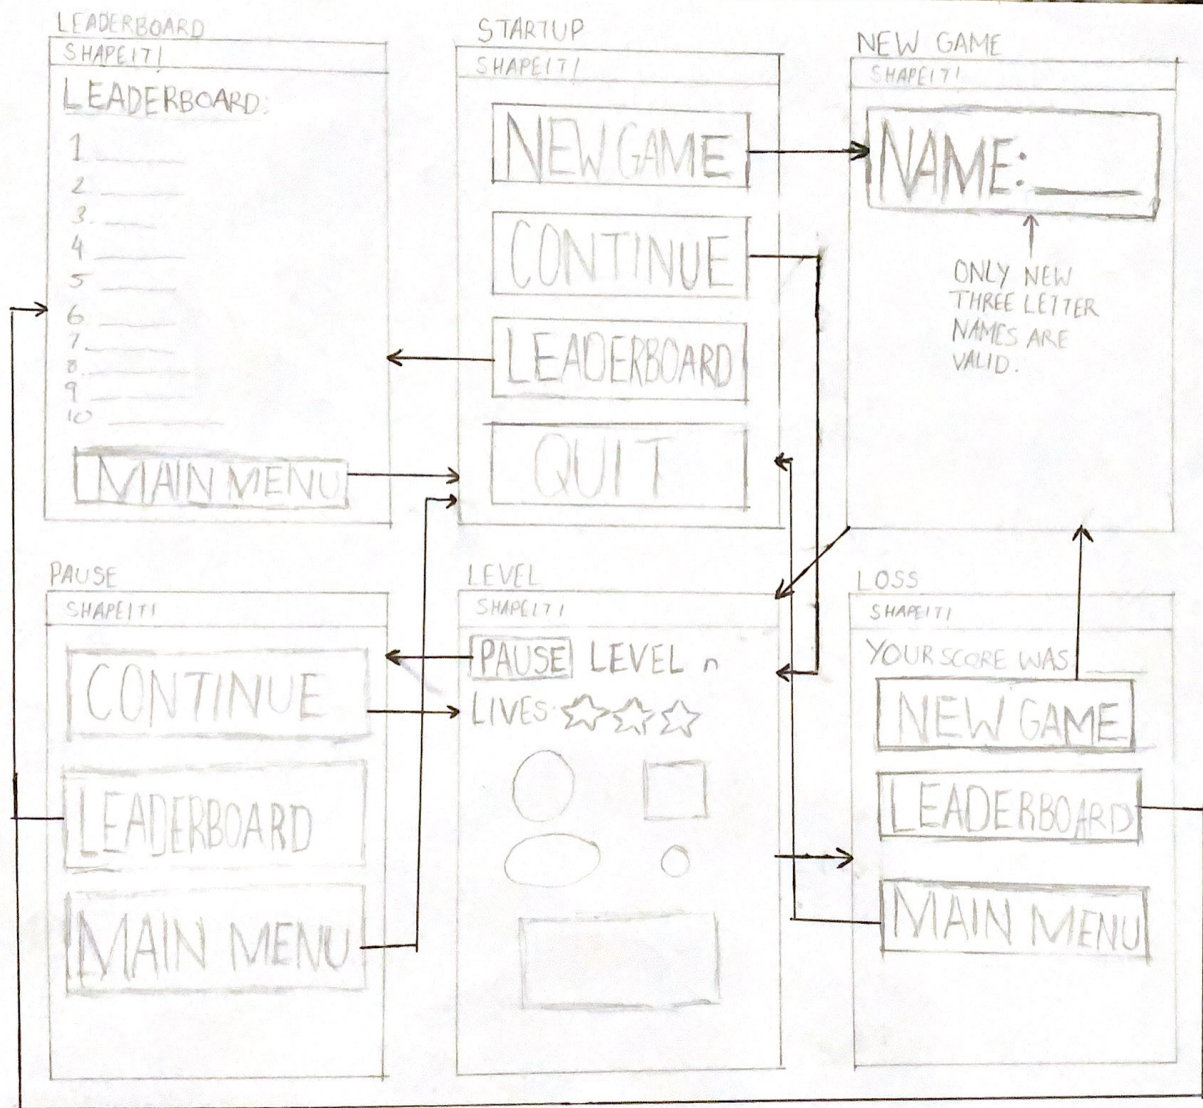 LEADERBOARD
SHAPEIT!
LEADERBOARD:
1.
2.
3.
4
5
6.
7.
8.
9
10
MAIN MENU
STARTUP
SHAPEIT!
NEW GAME
CONTINUE
LEADERBOARD
QUIT
NEW GAME
SHAPEIT!
NAME:
ONLY NEW
THREE LETTER
NAMES ARE
VALID.
PAUSE
SHAPEIT!
CONTINUE
LEADERBOARD
MAIN MENU
LEVEL
SHAPEIT!
PAUSE LEVEL n
LIVES:
LOSS
SHAPEIT!
YOUR SCORE WAS
NEW GAME
LEADERBOARD
MAIN MENU